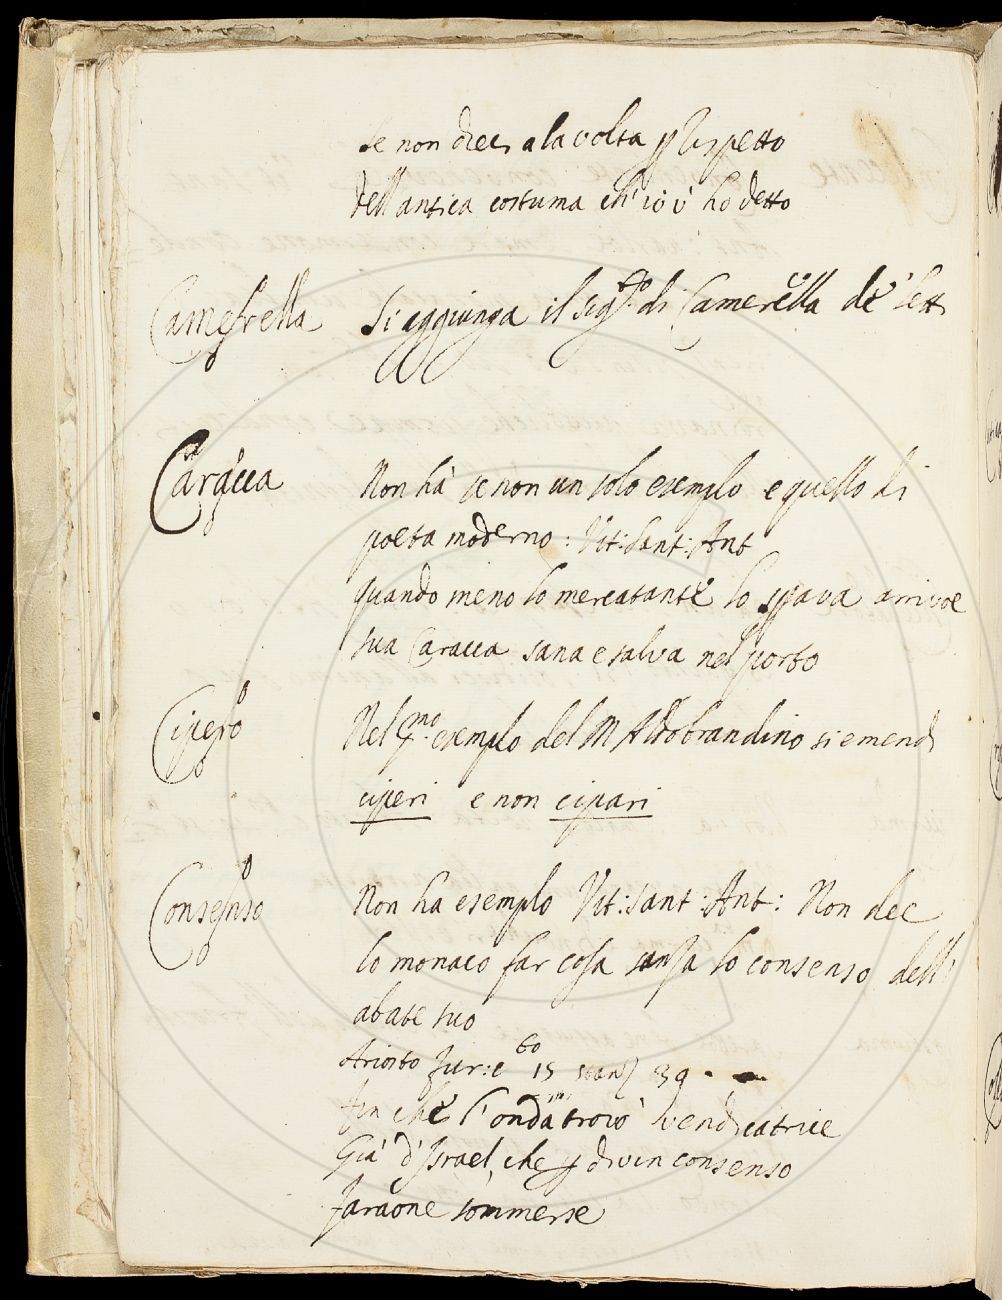 se non dieci a la volta p rispetto
dell'antica costuma ch'io v'ho detto
Camerella Si aggiunga il sigto di Camerella de' lett
Caracca Non hà se non un solo esempio e quello di
poeta moderno: Vit: Sant: Ant
quando meno lo mercatante lo spava arrivoe
sua Caracca sana e salva nel porto
Cipero Nel pmo esempio del M Aldobrandino si emendi
ciperi e non cipari
Consenso Non ha esempio Vit: Sant: Ant: Non dee
lo monaco far cosa sanza lo consenso dell'
abate suo
Ariosto Fur: cto 15 stanz 39
fin che l'onda trovò vendicatrice
Già d'Israel, che p divin consenso
Faraone sommerse